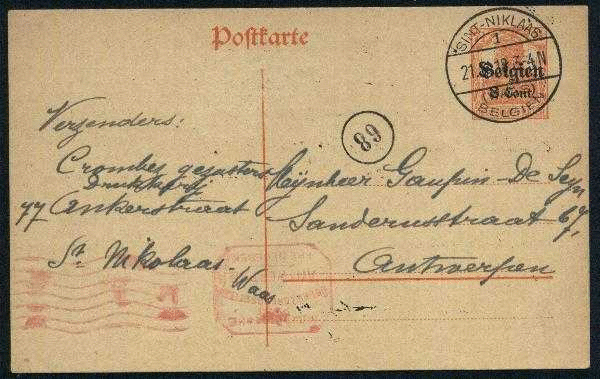 Postkarte
SINT-NIKLAAS
1
Belgien
8 Cent.
BELGIEN
89
Verzenders:
Crombez gezusters
Drukkerij
77 Ankerstraat
St Nikolaas
Waas
Mijnheer Gaupin-De Seyn
Sanderusstraat 67,
Antwerpen